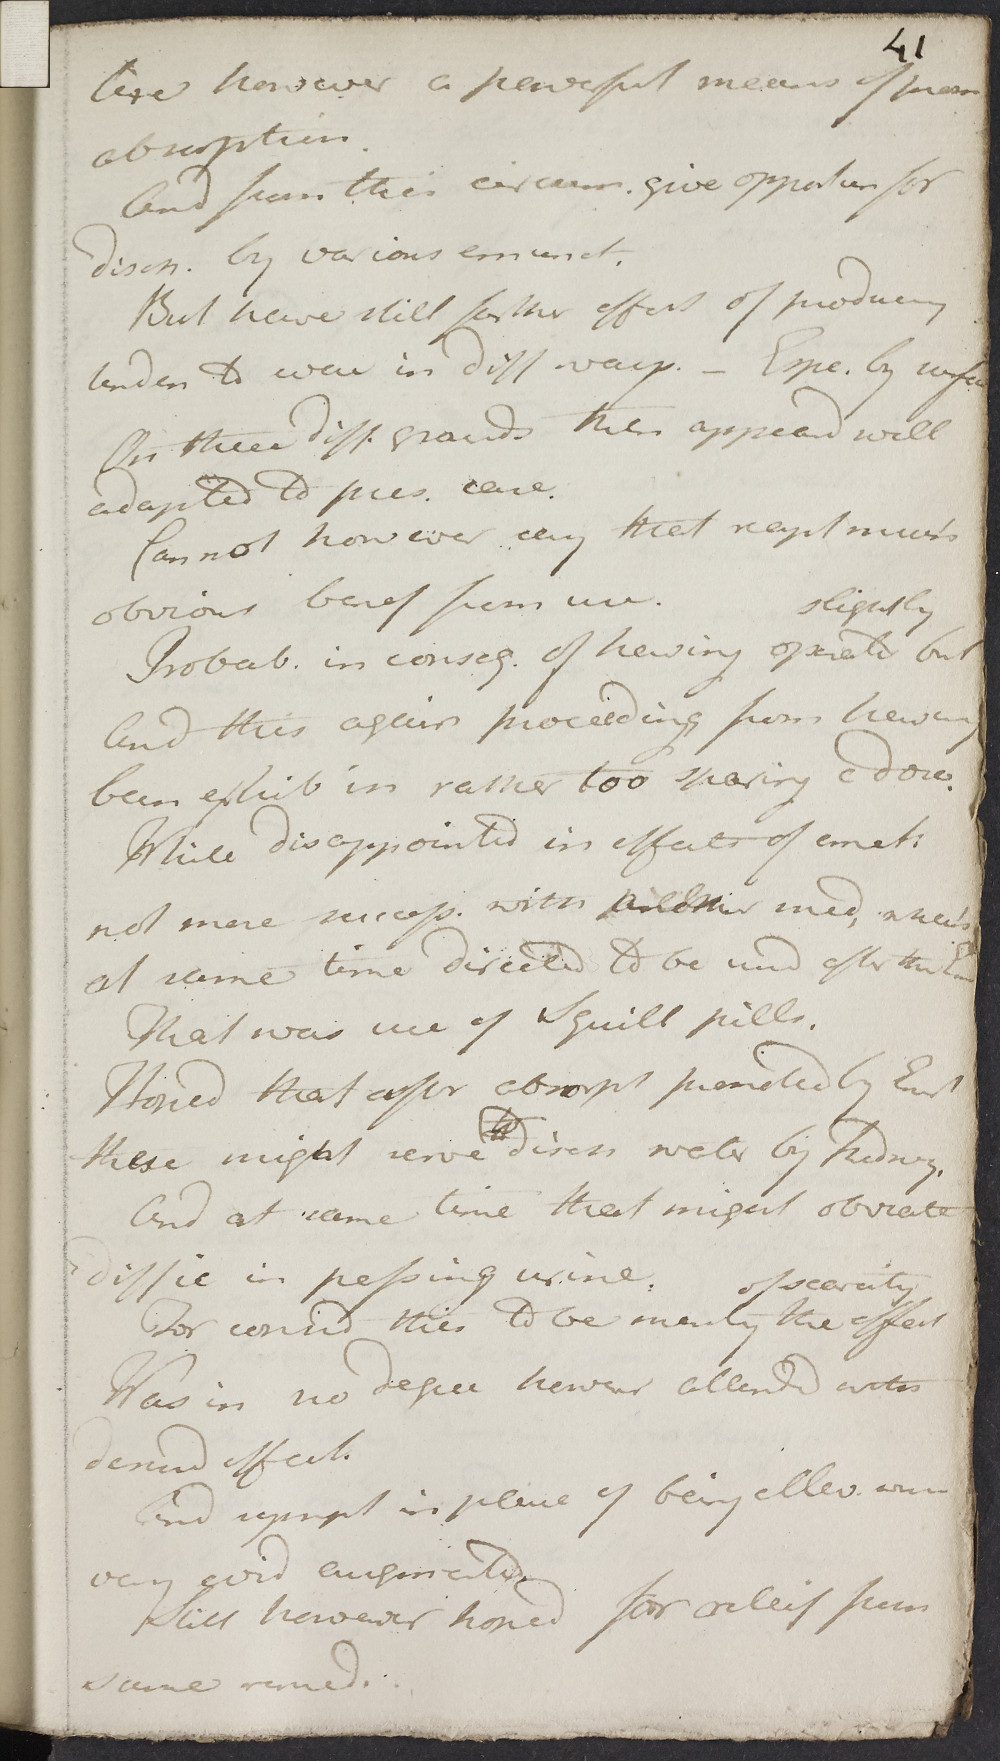 41
are however a powerful means of prom
absorption.
And from this circum. give opportun for
disch. by various emunct.
But have still farther effect of producing
tenden to evac in diff ways. – Espe. by
On these diff. grounds then appeared well
adapted to pres. case.
Cannot however say that sympt much
obvious benef from use.
slightly
Probab. in conseq. of having operated but
And this again proceeding from having
been exhib in rather too sparing a dose.
While disappointed in effects of emet:
not more success. with another med, which
at same time directed to be used after the Em
That was use of Squill pills.
Hoped that after absorpt promoted by Emet
these might serve to disch water by kidney.
And at same time that might obviate
diffic in passing urine.
of scarcity
For consid this to be merely the effect
Was in no degree however attended with
desired effect.
And sympt in place of being allev. were
very evid augmented
Still however hoped for releif from
same remed.